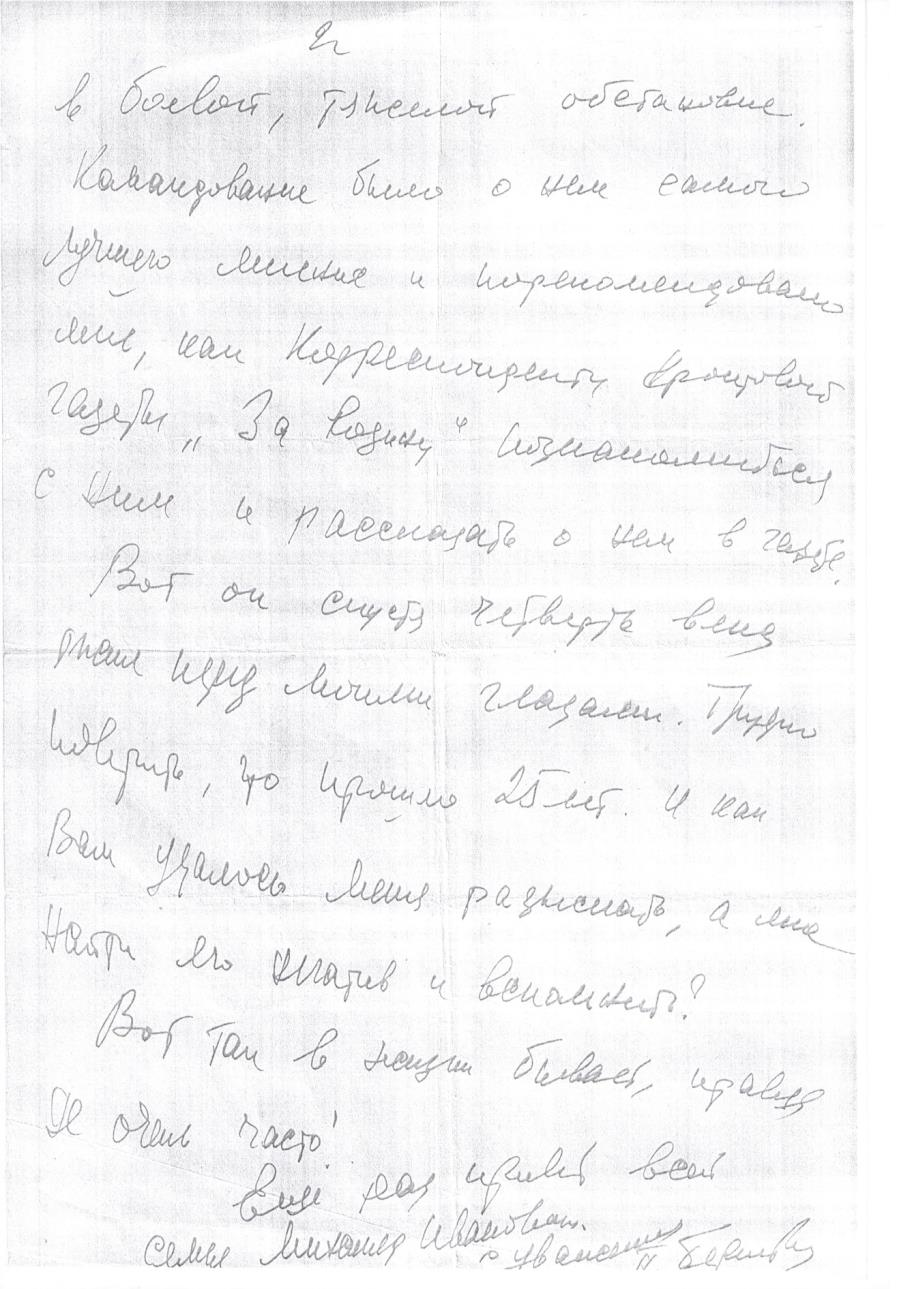 2
в боевой, тяжелой обстановке.
Командование было о нем самого
лучшего мнения и порекомендовало
мне, как корреспонденту фронтовой
газеты „За Родину“ познакомиться
с ним и рассказать о нем в газете.
Вот он спустя четверть века
перед моими глазами. Трудно
поверить, что прошло 25 лет. И как
Вам удалось меня разыскать, а мне
найти его негатив и вспомнить?
Вот так в жизни бывает, правда
не очень часто!
Еще раз привет всей
семье Михаила Ивановича.
с уважением